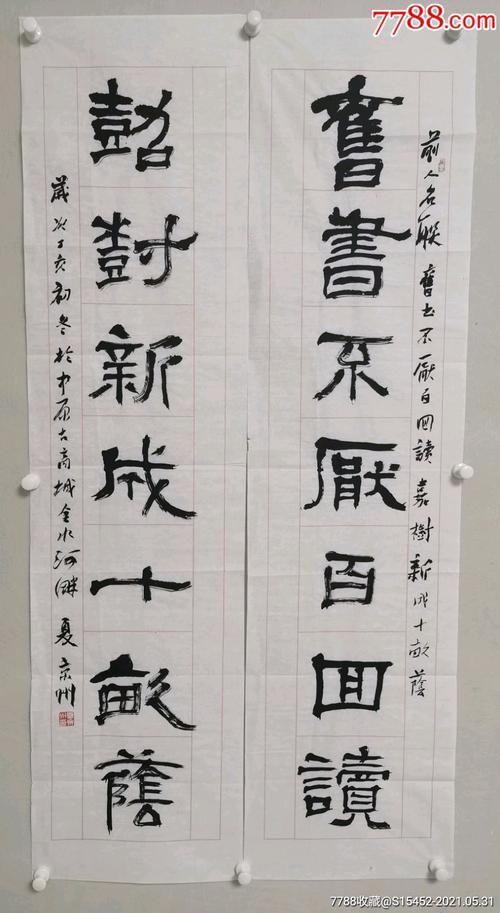 7788.com
前人名聯 舊书不厭百回讀 嘉樹新成十畝蔭
舊書不厭百回讀
嘉樹新成十畝蔭
歲次丁亥初冬於中原古商城金水河畔 夏京州
7788收藏@S15452-2021.05.31